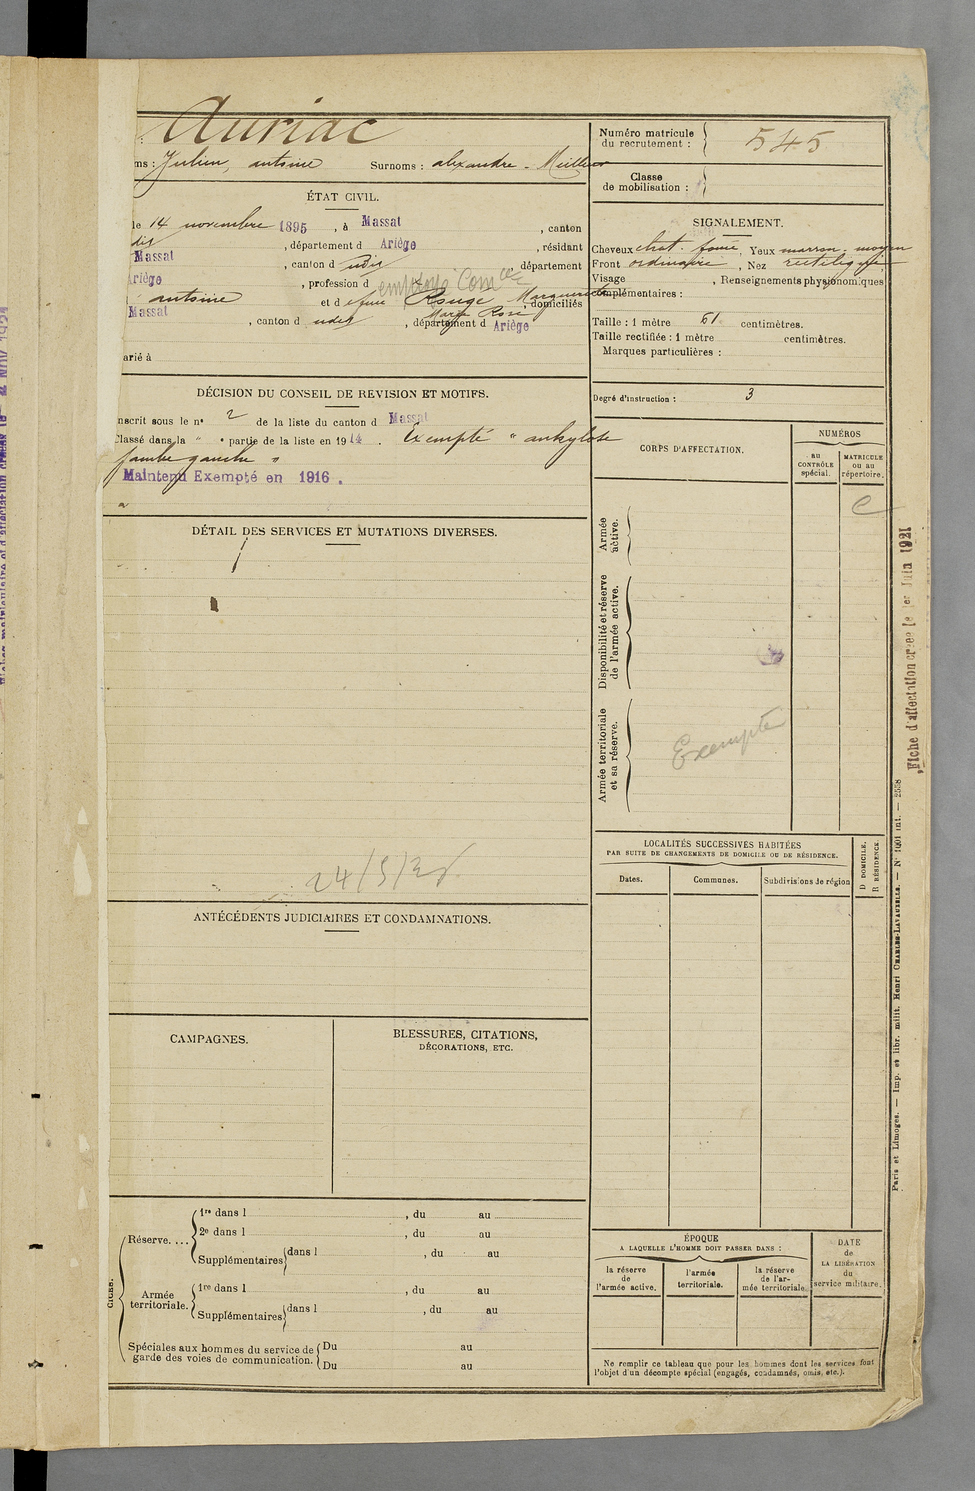 Auriac
Numéro matricule du recrutement : 545
ms : Julien, antoine Surnoms : alexandre -
Classe de mobilisation :
ÉTAT CIVIL.
le 14 novembre 1895, à Massat, canton
dit, département d Ariège, résidant
Massat, canton d udit, département
Ariège, profession d employé Comce
antoine et d efeue Rouge Marguerite, domiciliés
Marie Rose
Massat, canton d udit, département d Ariège
arié à
SIGNALEMENT.
Cheveux chat. foncé, Yeux marron. moyen
Front ordinaire, Nez rectiligne
Visage , Renseignements physionomiques
complémentaires :
Taille : 1 mètre 61 centimètres.
Taille rectifiée : 1 mètre centimètres.
Marques particulières :
Degré d'instruction : 3
DÉCISION DU CONSEIL DE REVISION ET MOTIFS.
nscrit sous le n° 2 de la liste du canton d Massat
Classé dans la " " partie de la liste en 1914. Exempté " ankylose
jambe gauche "
Maintenu Exempté en 1916.
DÉTAIL DES SERVICES ET MUTATIONS DIVERSES.
24/5/35
CORPS D'AFFECTATION.
NUMÉROS
au CONTRÔLE spécial.
MATRICULE ou au répertoire.
C
Armée active.
Disponibilité et réserve de l'armée active.
Armée territoriale et sa réserve.
Exempté
LOCALITÉS SUCCESSIVES HABITÉES
PAR SUITE DE CHANGEMENTS DE DOMICILE OU DE RÉSIDENCE.
Dates.
Communes.
Subdivisions de région
D DOMICILE.
R RÉSIDENCE.
ANTÉCÉDENTS JUDICIAIRES ET CONDAMNATIONS.
CAMPAGNES.
BLESSURES, CITATIONS,
DÉCORATIONS, ETC.
Réserve....
1re dans l , du au
2e dans l , du au
Supplémentaires dans l , du au
Armée territoriale.
1re dans l , du au
Supplémentaires dans l , du au
Spéciales aux hommes du service de garde des voies de communication.
Du au
Du au
ÉPOQUE
A LAQUELLE L'HOMME DOIT PASSER DANS :
la réserve de l'armée active.
l'armée territoriale.
la réserve de l'armée territoriale.
DATE de LA LIBÉRATION du service militaire.
Ne remplir ce tableau que pour les hommes dont les services font
l'objet d'un décompte spécial (engagés, condamnés, omis, etc.).
Fiche d'affectation créée le 1er Juin 1921
Paris et Limoges. — Imp. et libr. milit. Henri CHARLES-LAVAUZELLE. — N° 1001 int. — 2558